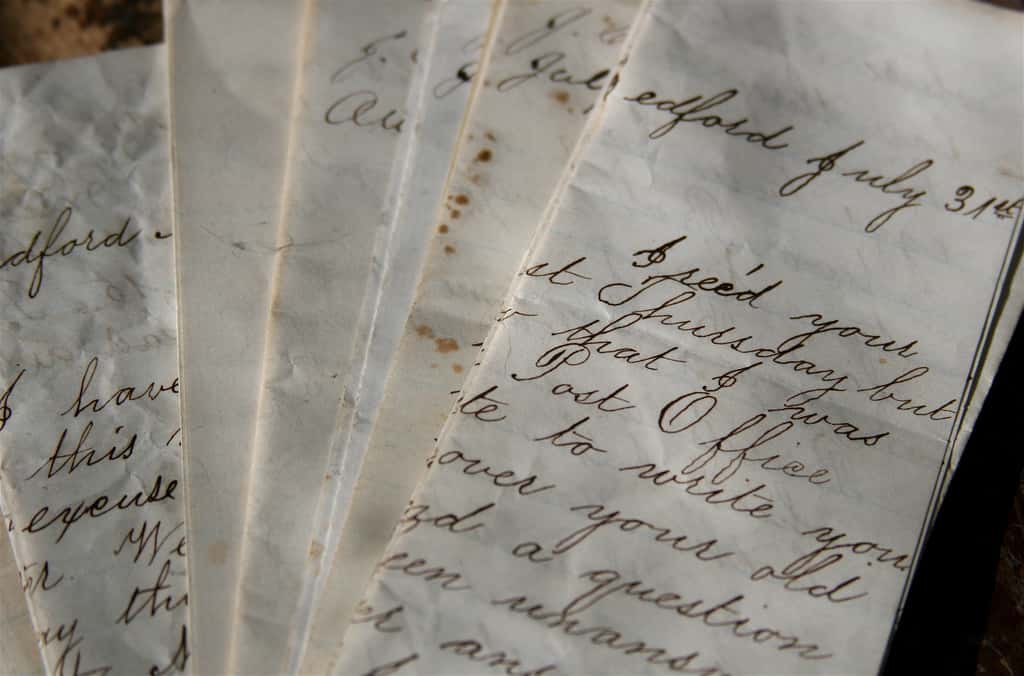 dford.
I have
this
excuse
We
Au
Jul
edford July 31st
I rec'd your
st Thursday but
that I was
Post Office
te to write you
over your old
nd a question
een unansw
er ans